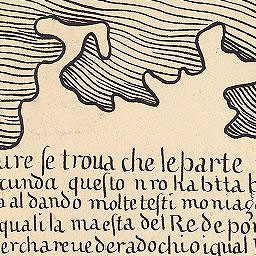 ure se troua che le parte
cunda questo nro habtta
al dando molte testi monia
quali la maesta del Re de por
erchare ue de ra do chio igual